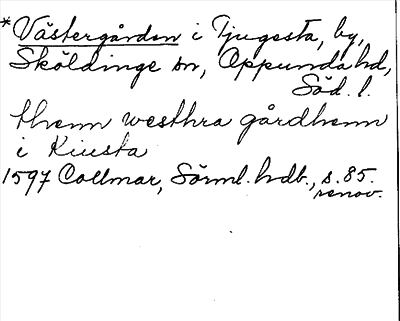 *Västergården i Tjugesta, by,
Sköldinge sn, Oppunda hd,
Söd. l.
thenn westhra gårdhenn
i Kiusta
1597 Collmar, Sörml. hdb., s. 85.
renov.